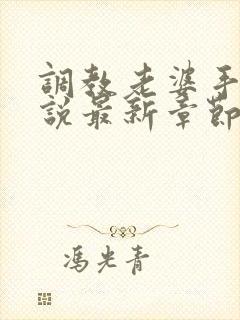 調教老婆手
說最新章節
馮光青